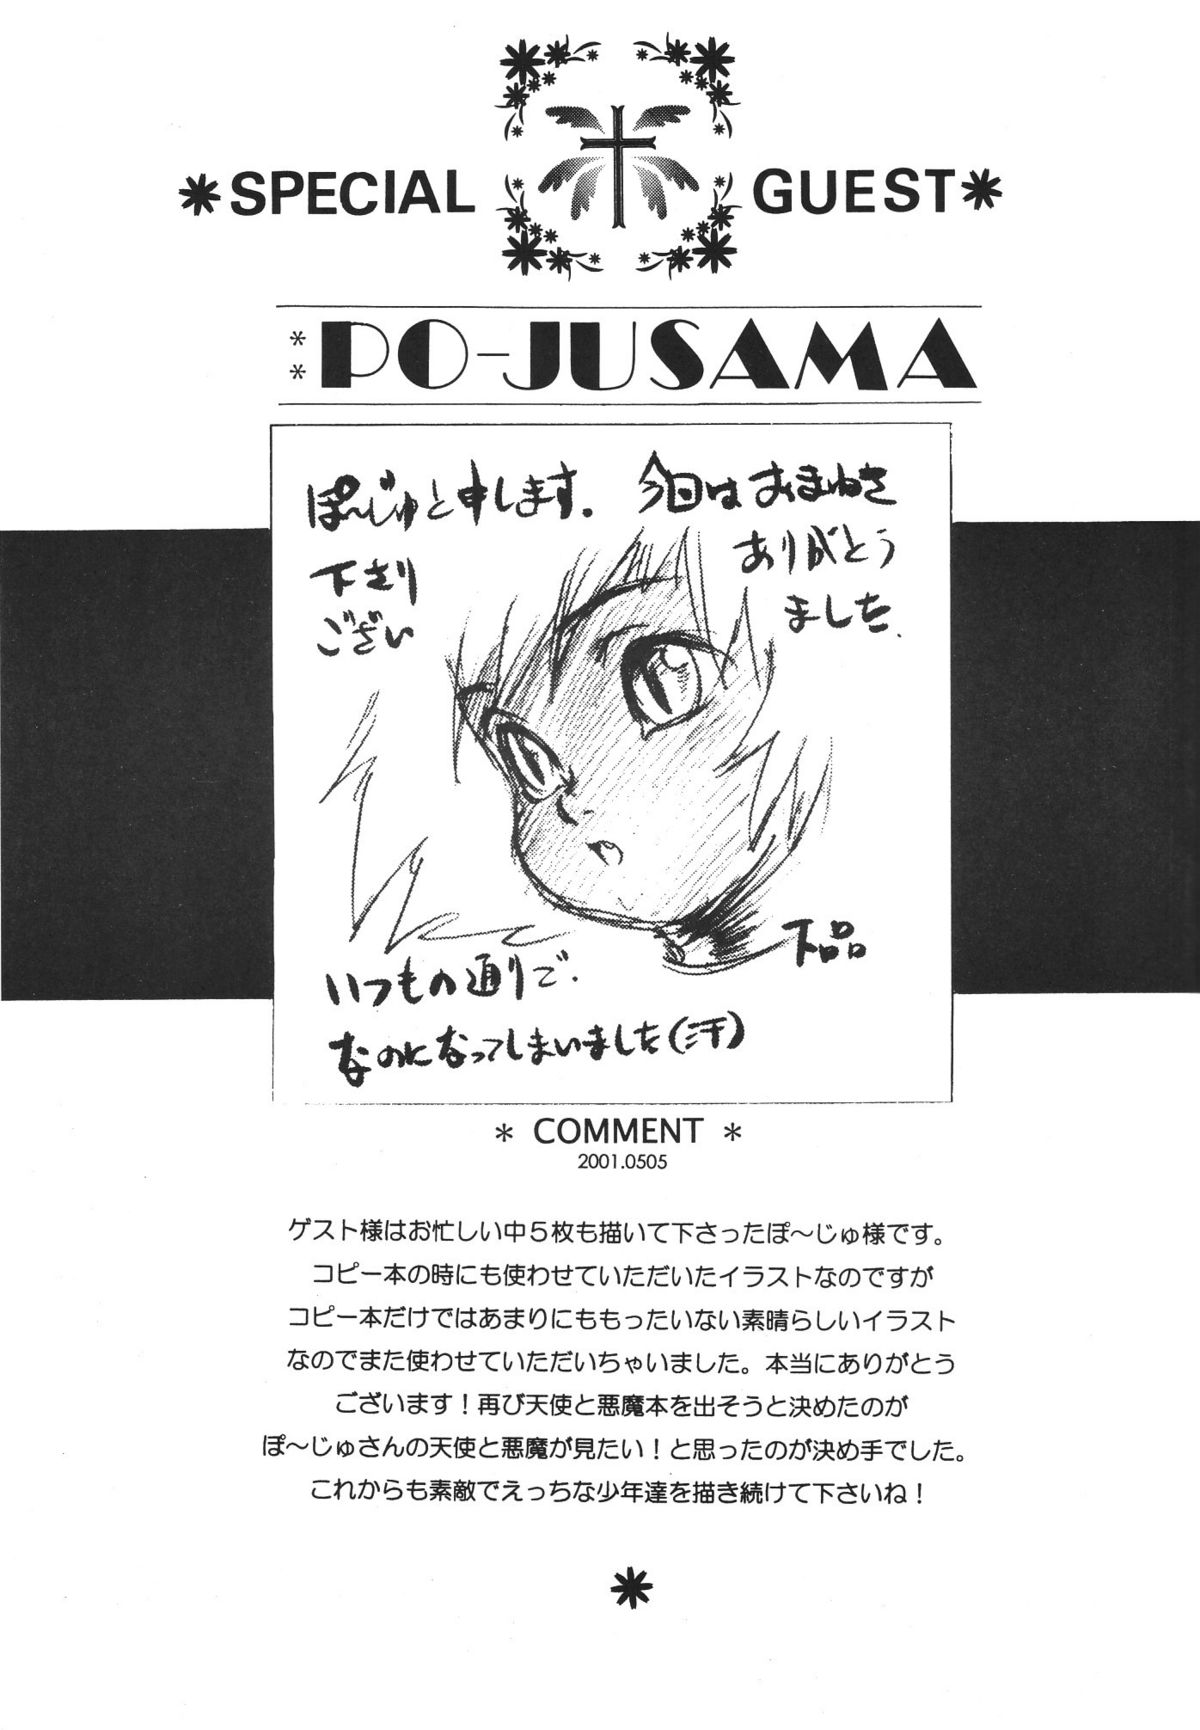 *SPECIAL GUEST*
**PO-JUSAMA
ぽ〜じゅと申します。 今回はおまねき
下さり ありがとう
ござい ました.
下品
いつもの通りで.
なのになってしまいました(汗)
* COMMENT *
2001.0505
ゲスト様はお忙しい中5枚も描いて下さったぽ〜じゅ様です。
コピー本の時にも使わせていただいたイラストなのですが
コピー本だけではあまりにももったいない素晴らしいイラスト
なのでまた使わせていただいちゃいました。本当にありがとう
ございます！再び天使と悪魔本を出そうと決めたのが
ぽ〜じゅさんの天使と悪魔が見たい！と思ったのが決め手でした。
これからも素敵でえっちな少年達を描き続けて下さいね！